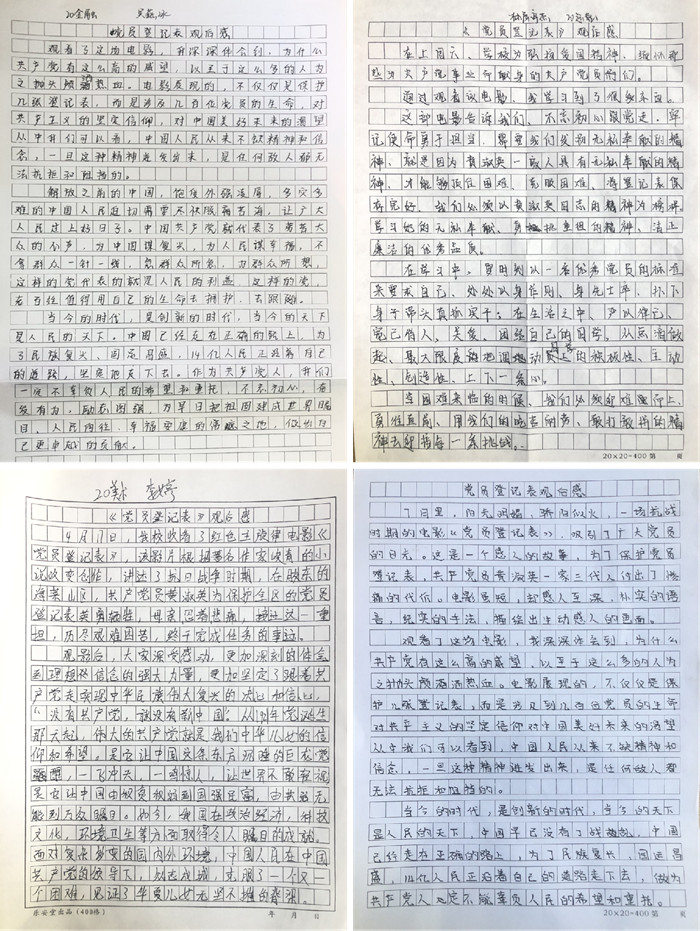 20金融
党员登记表观后感
观看了这场电影，我深深体会到，为什么
共产党有这么高的威望，以至于这么多的人为
之抛头颅洒热血。电影展现的，不仅仅是保护
几张登记表，而是涉及几百位党员的生命，对
共产主义的坚定信仰，对中国美好未来的渴望
从中我们可以看到，中国人民从来不缺精神和信
念，一旦这种精神迸发出来，是任何敌人都无
法抗拒和阻挡的。
解放之前的中国，饱受外强凌辱，多灾多
难的中国人民迫切需要
人民过上好日子。中国共产党就代表了劳苦大
众的心声，为中国谋复兴，为人民谋幸福，不
拿群众一针一线，急群众所急，为群众所想，
这样的党代表的就是人民的利益，这样的党，
者百姓值得用自己的生命去拥护，去跟随。
当今的时代，是创新的时代，当今的天下
是人民的天下。中国已经走在正确的路上，为
了民族复兴，国运昌盛，14亿人民正沿着自己
的道路，坚定地走下去。作为共产党人，我们
一定不辜负人民的希望和重托，不忘初心，奋
发有为，励志图强，为早日把祖国建成世界瞩
目、人民向往、幸福安康的之地，做出自
己更卓越的贡献。
《党员登记表》观后感
在上周六，学校为弘扬爱国精神，组织
为共产党事业而献身的共产党员们。
通过观看该电影，我学习到了很多东西。
这部电影告诉我们，不忘初心跟党走，牢
记使命勇于担当，需要我们发扬无私奉献的精
神，就是因为黄淑英一家人具有无私奉献的精
神，才能够抵住困难，克服困难，将登记表保
存完好，我们必须以黄淑英同志的精神为榜样
学习她的无私奉献、勇担重担的精神，清正
廉洁的优秀品质。
在学习中，要时刻以一名优秀党员的标准
来要求自己，处处以身作则、身先士卒，扑下
身子带头真抓实干；在生活之中，严以律己，
宽己待人，关爱、团结自己的同学，从点滴做
起，最大限度地调动员工的积极性、主动
性、创造性，上下一条心。
当困难来临的时候，我们必须迎难而上，
勇往直前，用我们的吃苦耐劳，敢打敢拼的精
神去迎接每一条挑战。
20×20=400 第 页
20美术 李婷
《党员登记表》观后感
4月17日，我校收看了红色主旋律电影《
党员登记表》，该影片根据著名作家峻青的小
说改变创作，讲述了抗日战争时期，在胶东的
海莱山区，共产党员黄淑英为保护全区的党员
登记表英勇牺牲，母亲忍着悲痛，接过这一重
担，历尽艰难困苦，终于完成任务的事迹。
观影后，大家深受感动，更加深刻的体会
到理想和信念的强大力量，更加坚定了跟着共
产党走实现中华民族伟大复兴的决心和信心。
“没有共产党，就没有新中国”。从1921年党诞生
那天起，伟大的共产党就是我们中华儿女的信
仰和希望。是它让中国这条东方沉睡的巨龙觉
醒，一飞冲天，一鸣惊人，让世界不敢轻视
是它让中国由积贫积弱到国强民富，由共苦无
能到万众瞩目。如今，我国在政治经济，科技
文化，环境卫生等方面取得令人瞩目的成就。
面对复杂多变的国内外环境，中国人民在中国
共产党的领导下，众志成城，克服了一个又一
个困难，见证了华夏儿女无坚不摧的脊梁。
乐安堂出品（400格） 年 月 日
党员登记表观后感
17日里，阳光明媚，骄阳似火，一诺抗战
时期的电影《党员登记表》，吸引了广大党员
的目光。这是一个感人的故事，为了保护党员
登记表，共产党员黄淑英一家三代人付出了惨
痛的代价。电影虽短，却感人至深，朴实的语
言，纪实的手法，描绘出生动感人的画面。
观看了这场电影，我深深体会到，为什么
共产党有这么高的威望，以至于这么多的人为
之抛头颅洒满热血。电影展现的，不仅仅是保
护几张登记表，而是涉及到几百位党员的生命
对共产主义的坚定信仰对中国美好未来的渴望
从中我们可以看到，中国人民从来不缺精神和
信念，一旦这种精神迸发出来，是任何敌人都
无法抗拒和阻挡的。
当今的时代，是创新的时代，当今的天下
是人民的天下，中国早已没有了战乱，中国
已经走在正确的路上，为了民族复兴，国运昌
盛，14亿人民正沿着自己的道路走下去，做为
共产党人一定不能辜负人民的希望和重托。
20×20=400 第 页